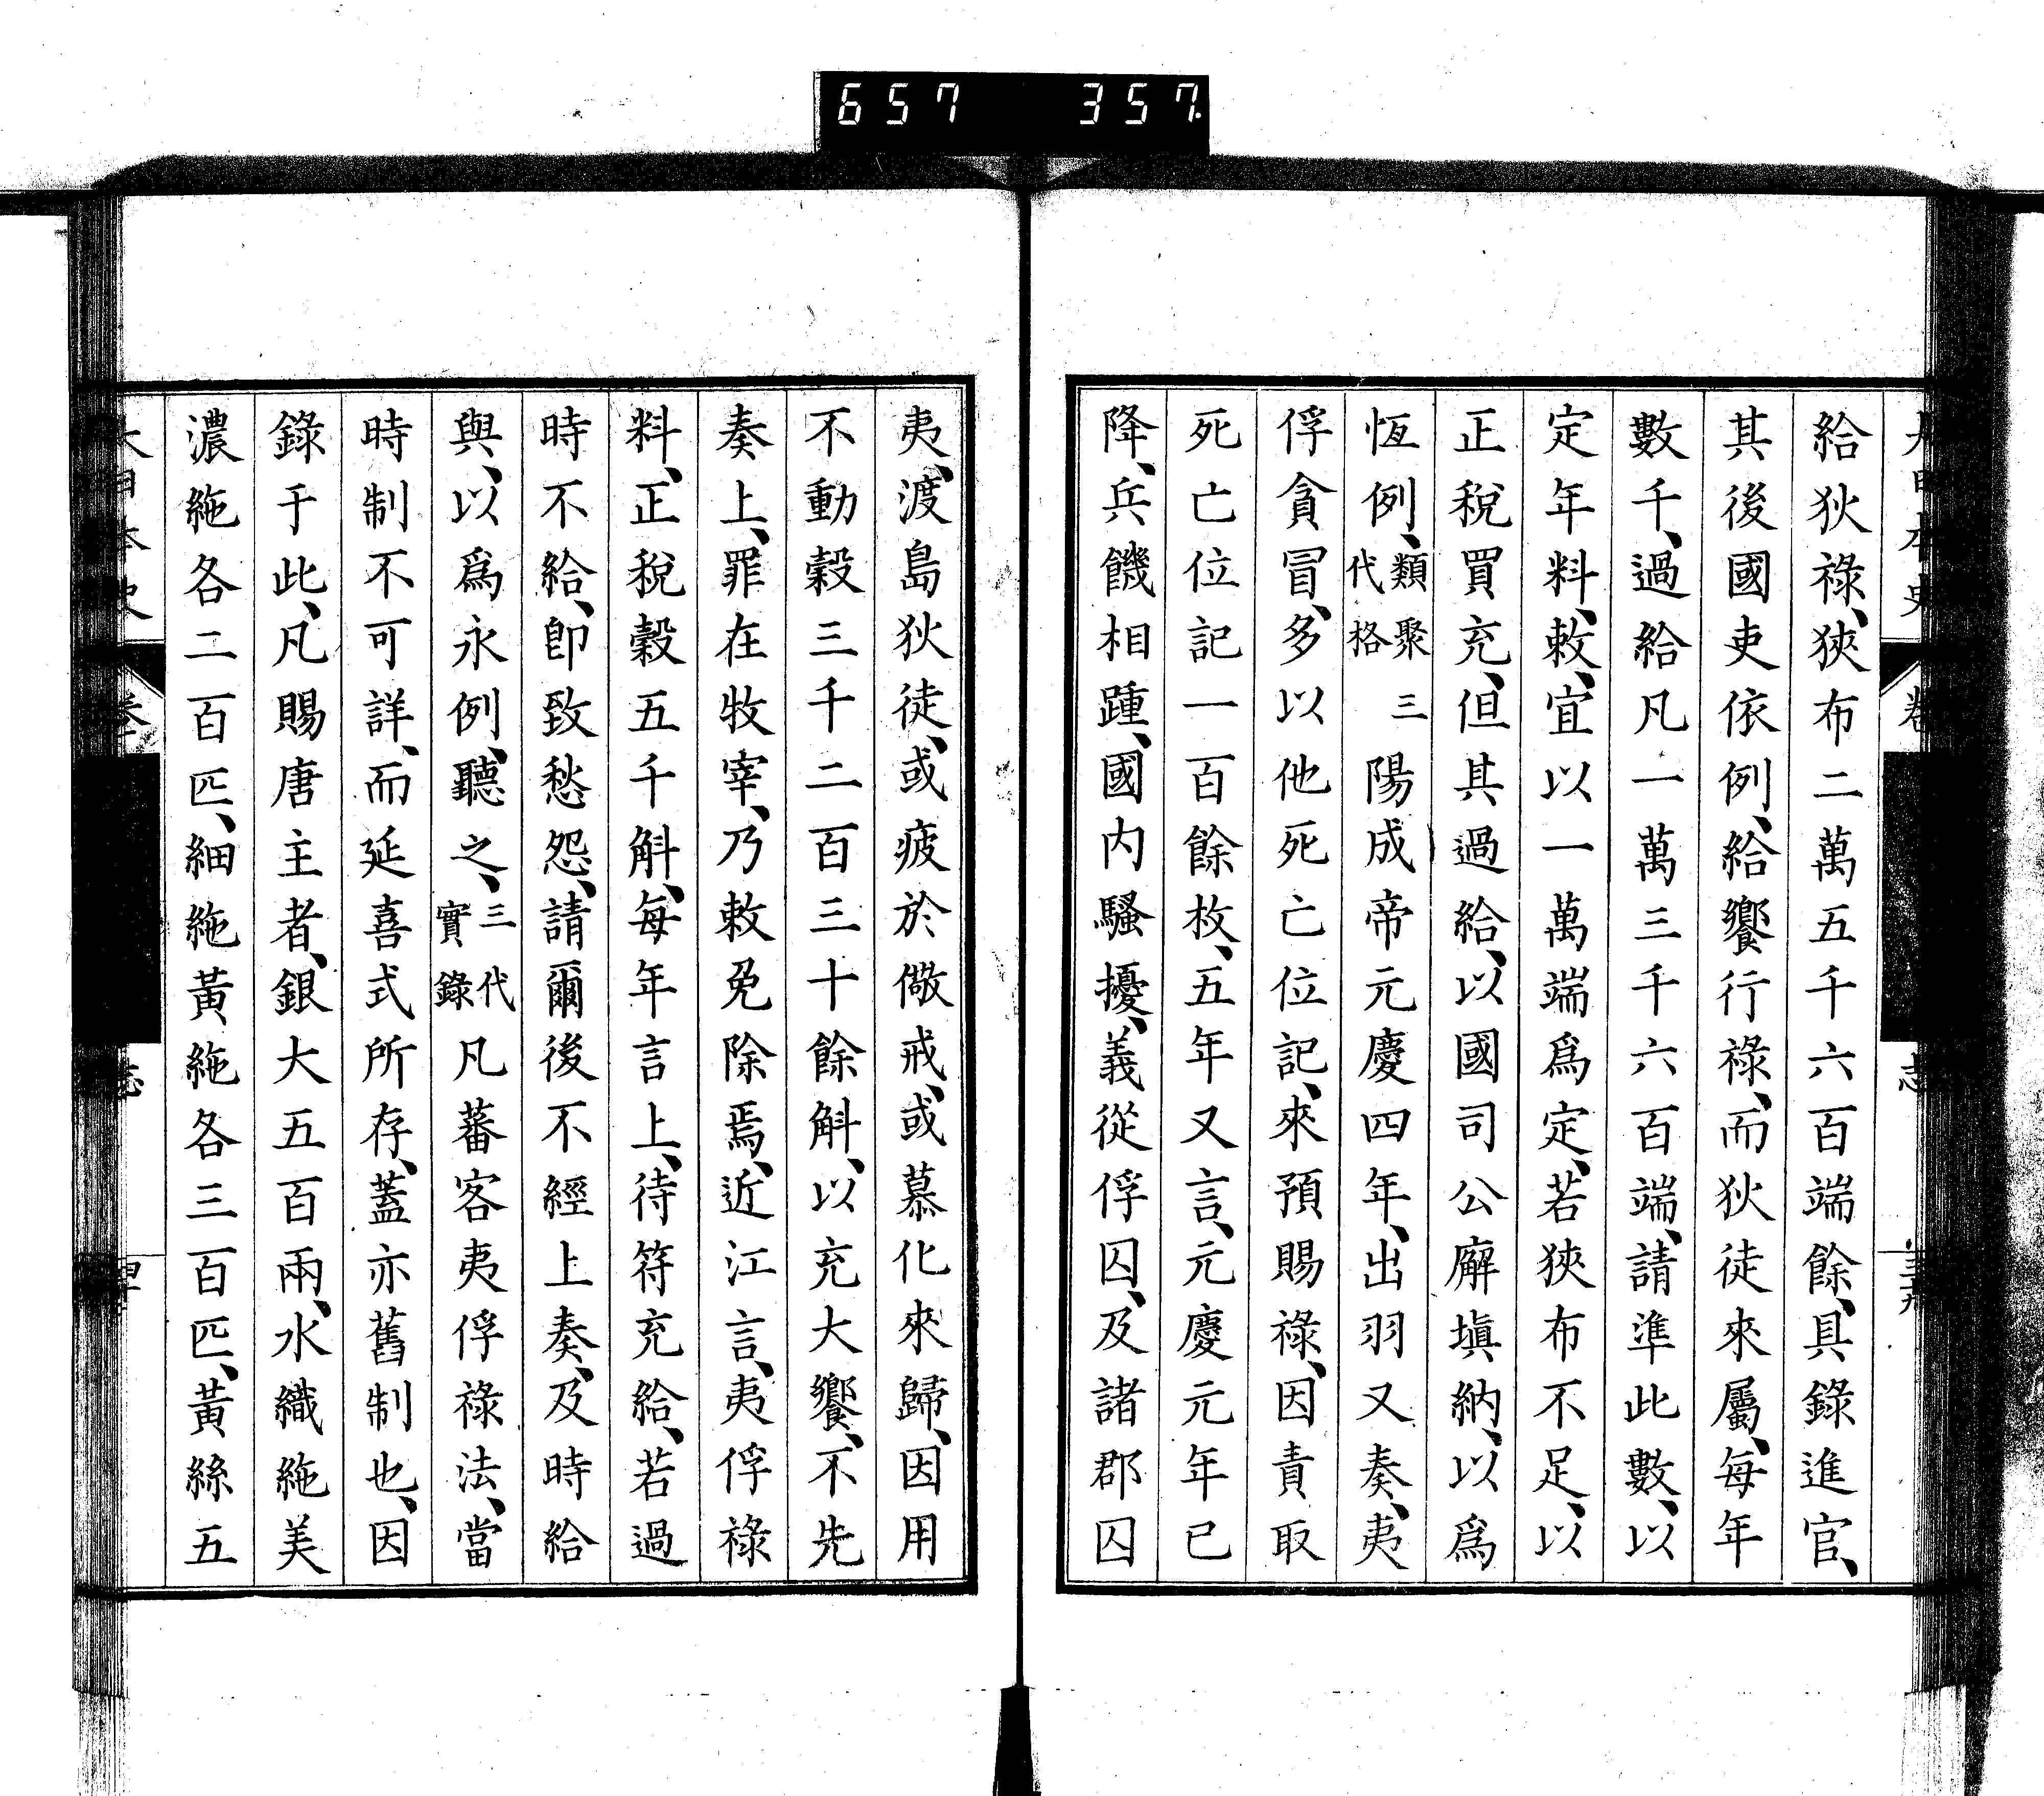 657 357
給狄祿、狹布二萬五千六百端餘、具錄進官、
其後國吏依例、給饗行祿、而狄徒來屬、每年
數千、過給凡一萬三千六百端、請準此數、以
定年料、敕、宜以一萬端爲定、若狹布不足、以
正稅買充、但其過給、以國司公廨塡納、以爲
恆例、類聚三代格陽成帝元慶四年、出羽又奏、夷
俘貪冒、多以他死亡位記、來預賜祿、因責取
死亡位記一百餘枚、五年又言、元慶元年已
降、兵饑相踵、國內騷擾、義從俘囚、及諸郡囚
夷、渡島狄徒、或疲於儆戒、或慕化來歸、因用
不動穀三千二百三十餘斛、以充大饗、不先
奏上、罪在牧宰、乃敕免除焉、近江言、夷俘祿
料、正稅穀五千斛、每年言上、待符充給、若過
時不給、卽致愁怨、請爾後不經上奏、及時給
與、以爲永例、聽之、三代實錄凡蕃客夷俘祿法、當
時制不可詳、而延喜式所存、蓋亦舊制也、因
錄于此、凡賜唐主者、銀大五百兩、水織絁美
濃絁各二百匹、細絁黃絁各三百匹、黃絲五